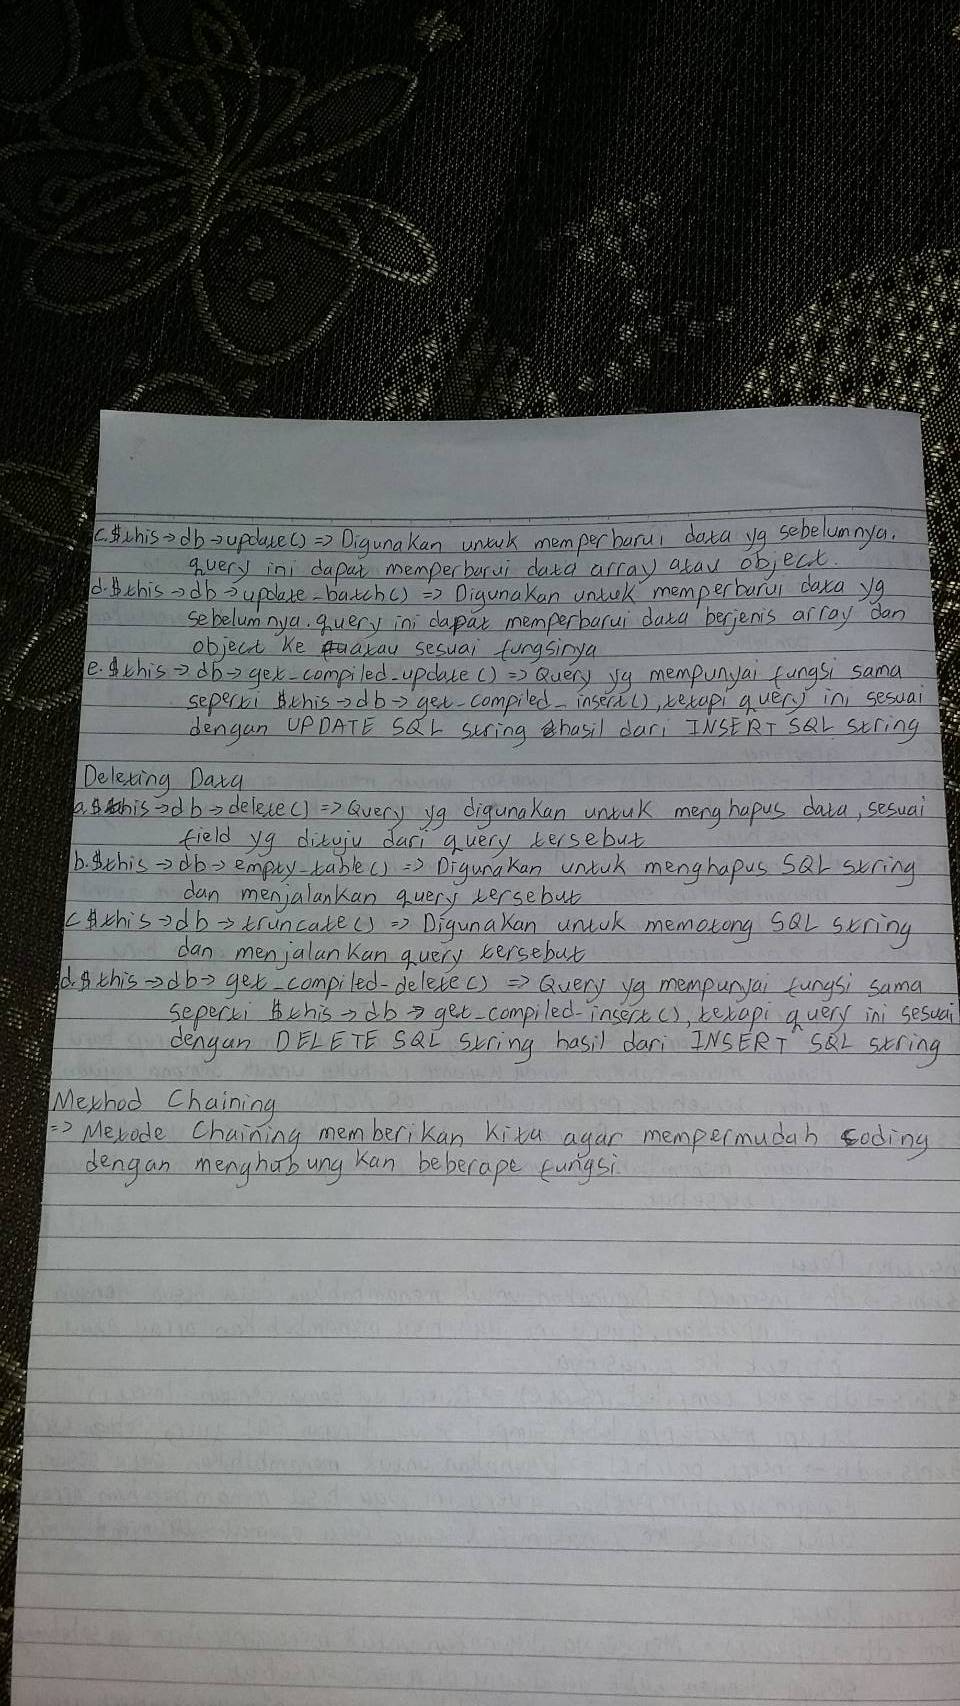 c. $this->db->update() => Digunakan untuk memperbarui data yg sebelumnya.
query ini dapat memperbarui data array atau object.
d. $this->db->update_batch() => Digunakan untuk memperbarui data yg
sebelumnya. query ini dapat memperbarui data berjenis array dan
object ke atau sesuai fungsinya
e. $this->db->get_compiled_update() => Query yg mempunyai fungsi sama
seperti $this->db->get_compiled_insert(), tetapi query ini sesuai
dengan UPDATE SQL string hasil dari INSERT SQL string
Deleting Data
a. $this->db->delete() => Query yg digunakan untuk menghapus data, sesuai
field yg dituju dari query tersebut
b. $this->db->empty_table() => Digunakan untuk menghapus SQL string
dan menjalankan query tersebut
c $this->db->truncate() => Digunakan untuk memotong SQL string
dan menjalankan query tersebut
d. $this->db->get_compiled-delete() => Query yg mempunyai fungsi sama
seperti $this->db->get_compiled-insert(), tetapi query ini sesuai
dengan DELETE SQL string hasil dari INSERT SQL string
Method Chaining
=> Metode Chaining memberikan kita agar mempermudah coding
dengan menghubungkan beberape fungsi.